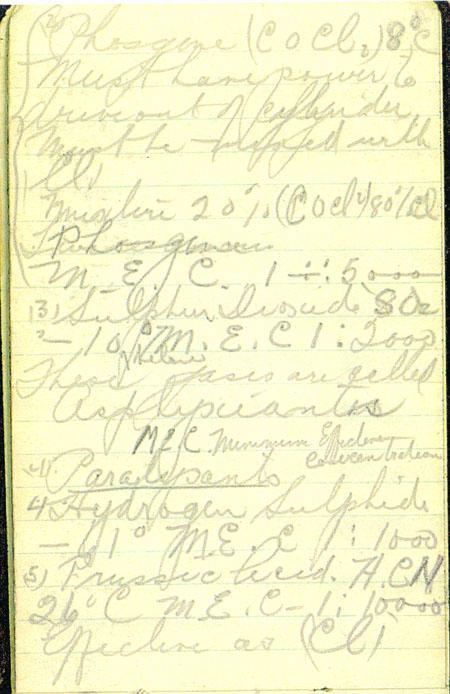 (2) Phosgene (C O Cl2) 8°C
Must have power to
drive out of cylinder
Must be mixed with
Cl)
Mixture 20% (COCl2) 80% Cl
Phosgene
M. E. C. 1 ÷ : 5000
(3) Sulphur Dioxide SO2
- 10° M. E. C 1 : 2000
These gases are called
Asphyxiants
M.E.C. Minimum Effective
Concentration
Paralysants
4 Hydrogen Sulphide
- 61° M.E.C 1 : 1000
5) Prussic Acid. H C N
26°C M.E.C - 1 : 10000
Effective as (Cl)